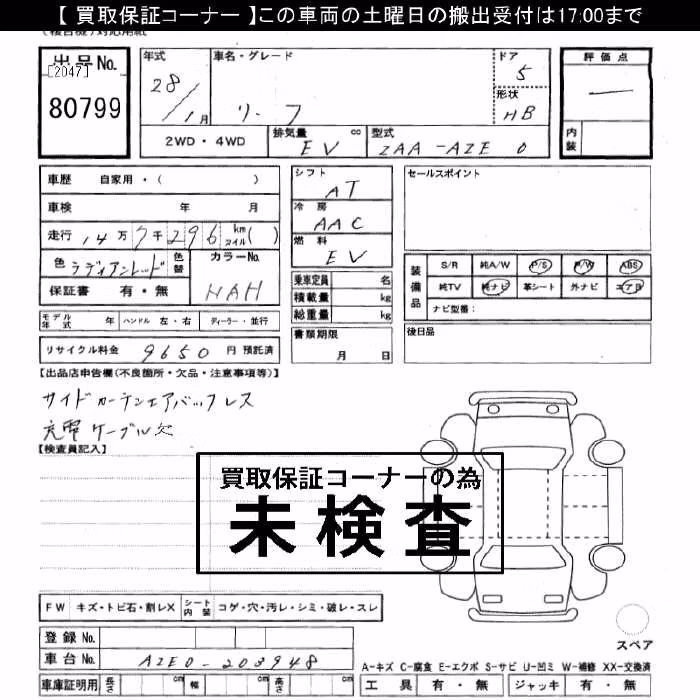 【 買取保証コーナー 】この車両の土曜日の搬出受付は17:00まで
出品No.
[2047]
80799
年式
28/1月
車名・グレード
リーフ
ドア
5
形状
HB
評価点
内装
2WD・4WD
排気量 cc
EV
型式
ZAA-AZE0
車歴 自家用・( )
車検 年 月
走行 14万7千296km マイル( )
色 ラディアントレッド 色替
カラーNo.
NAH
保証書 有・無
シフト
AT
冷房
AAC
燃料
EV
乗車定員 名
積載量 kg
総重量 kg
セールスポイント
装備品
S/R 純A/W P/S P/W ABS
純TV 純ナビ 革シート 外ナビ エアB
ナビ型番:
モデル年式 年 ハンドル 左・右 ディーラー・並行
書類期限
月 日
後日品
リサイクル料金 9650 円 預託済
【出品店申告欄(不良箇所・欠品・注意事項等)】
サイドカーテンエアバックレス
充電ケーブル欠
【検査員記入】
買取保証コーナーの為
未検査
FW キズ・トビ石・割レX シート内装 コゲ・穴・汚レ・シミ・破レ・スレ
登録No.
車台No. AZE0-203948
車庫証明用 長さ cm 幅 cm 高さ cm
スペア
A-キズ C-腐食 E-エクボ S-サビ U-凹ミ W-補修 XX-交換済
工具 有・無 ジャッキ 有・無